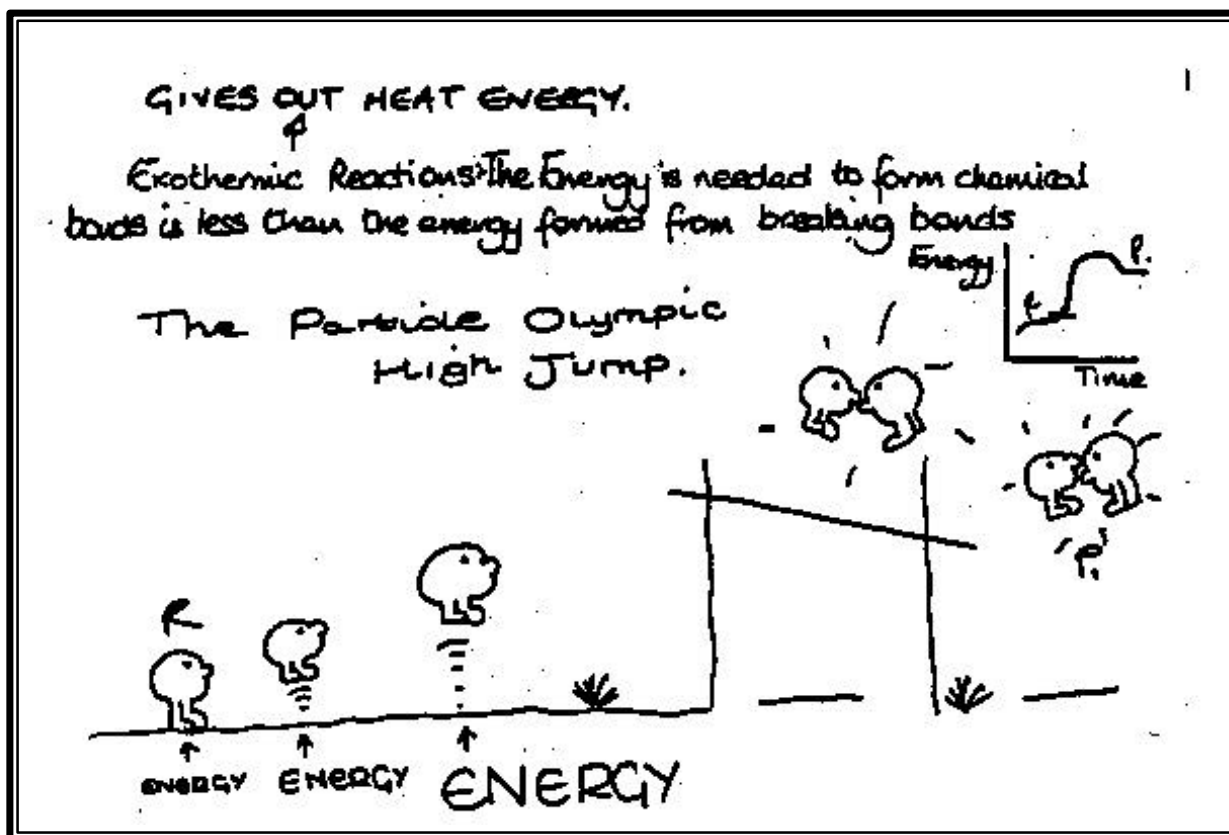 1
GIVES OUT HEAT ENERGY.
Exothermic Reactions: The Energy is needed to form chemical
bonds is less than the energy formed from breaking bonds
Energy
P.
Time
The Particle Olympic
High Jump.
R
P.
ENERGY ENERGY ENERGY